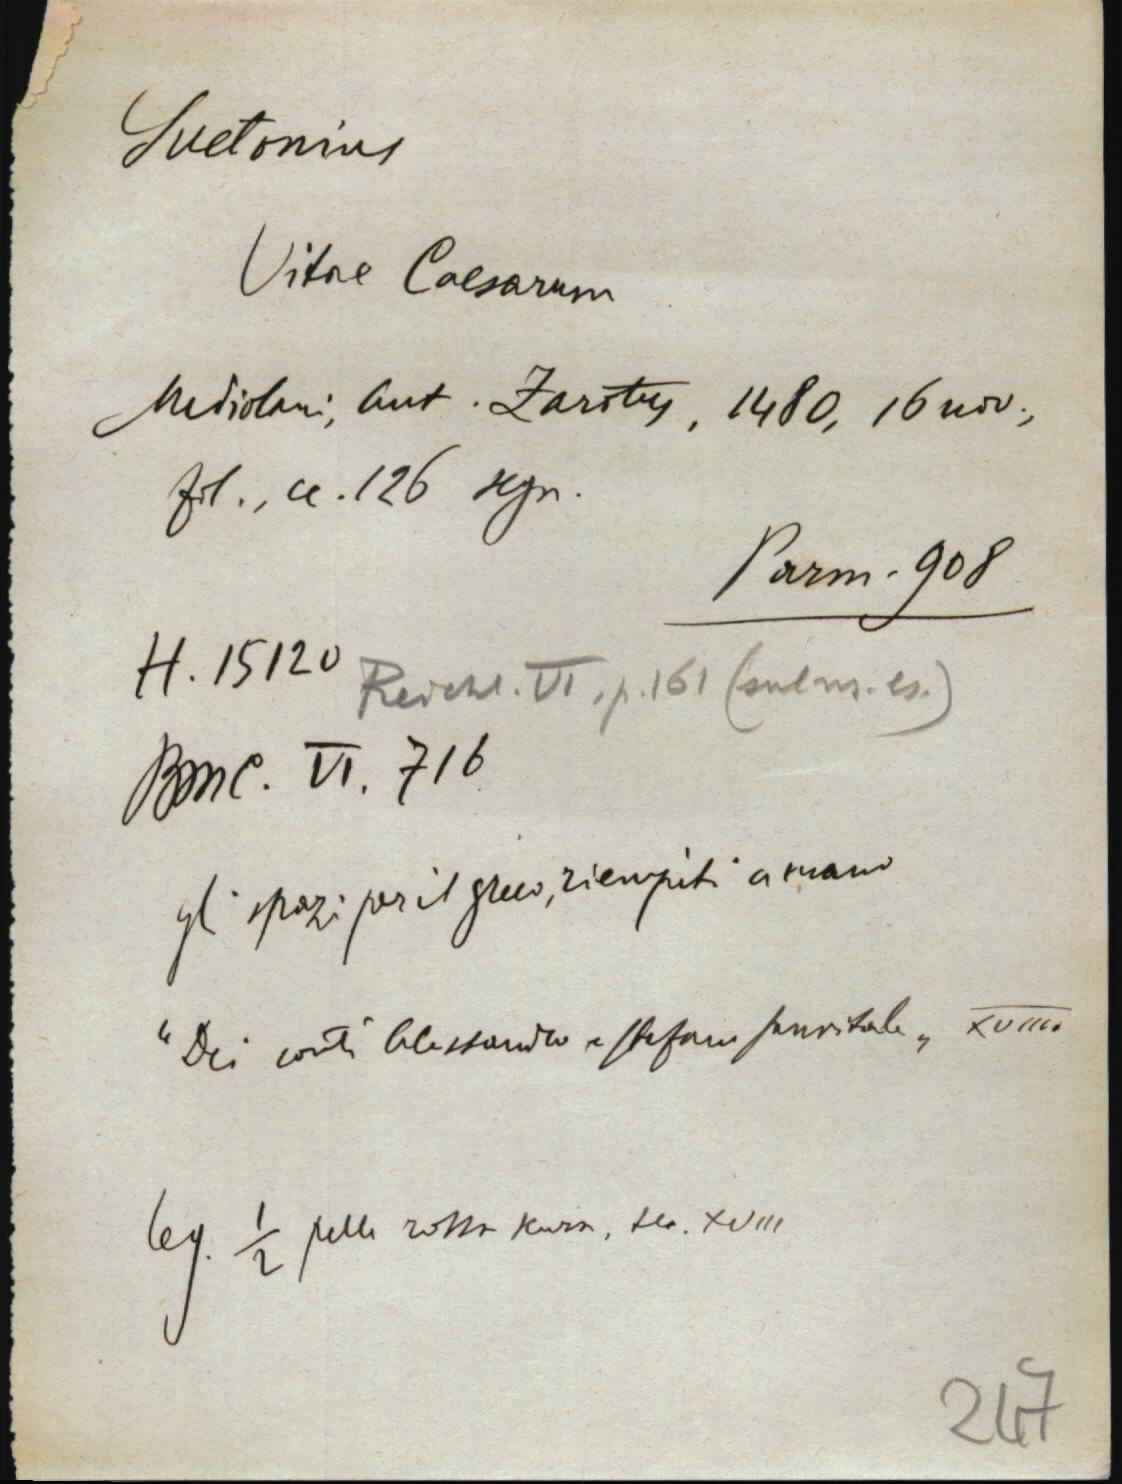 Suetonius
Vitae Caesarum
Mediolani, Ant. Zarotus, 1480, 16 nov.,
fol., cc. 126 segn.
Parm. 908
H. 15120 Reichl. VI, p. 161 (sul ns. es.)
BMC. VI. 716
gli spazi per il greco, riempiti a mano
"Dei conti Alessandro e Stefano Sanvitale„ XVIII.
leg. 1/2 pelle rossa scura, sec. XVIII
247